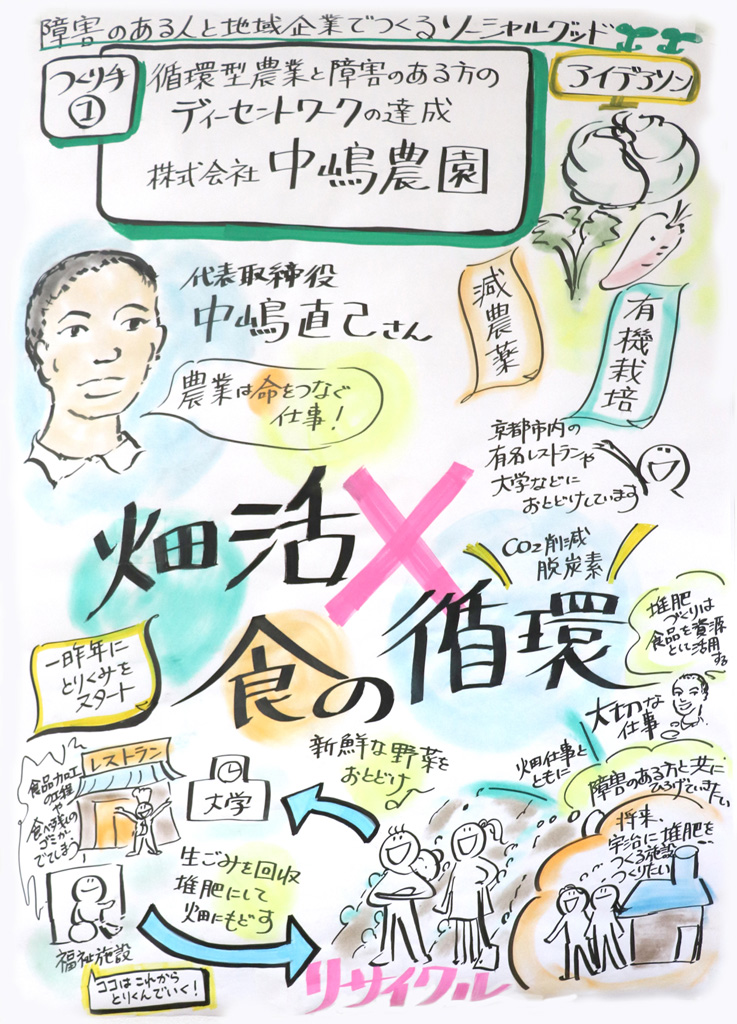 障害のある人と地域企業でつくるソーシャルグッド
つくり手
①
循環型農業と障害のある方の
ディーセントワークの達成
株式会社 中嶋農園
アイデアソン
代表取締役
中嶋直己さん
農業は命をつなぐ
仕事！
減農薬
有機栽培
京都市内の
有名レストランや
大学などに
おとどけしています
畑活×
食の循環
CO2削減
脱炭素
堆肥
づくりは
食品を資源
として活用
する
大切な
仕事
一昨年に
とりくみを
スタート
食品加工
の工程や
食べ残しの
ゴミが
でてしまう
レストラン
大学
新鮮な野菜を
おとどけ
畑仕事と
ともに
障害のある方と共に
ひろげていきたい
将来、
宇治に堆肥を
つくる施設
つくりたい
生ごみを回収
堆肥にして
畑にもどす
福祉施設
ココはこれから
とりくんでいく！
リサイクル